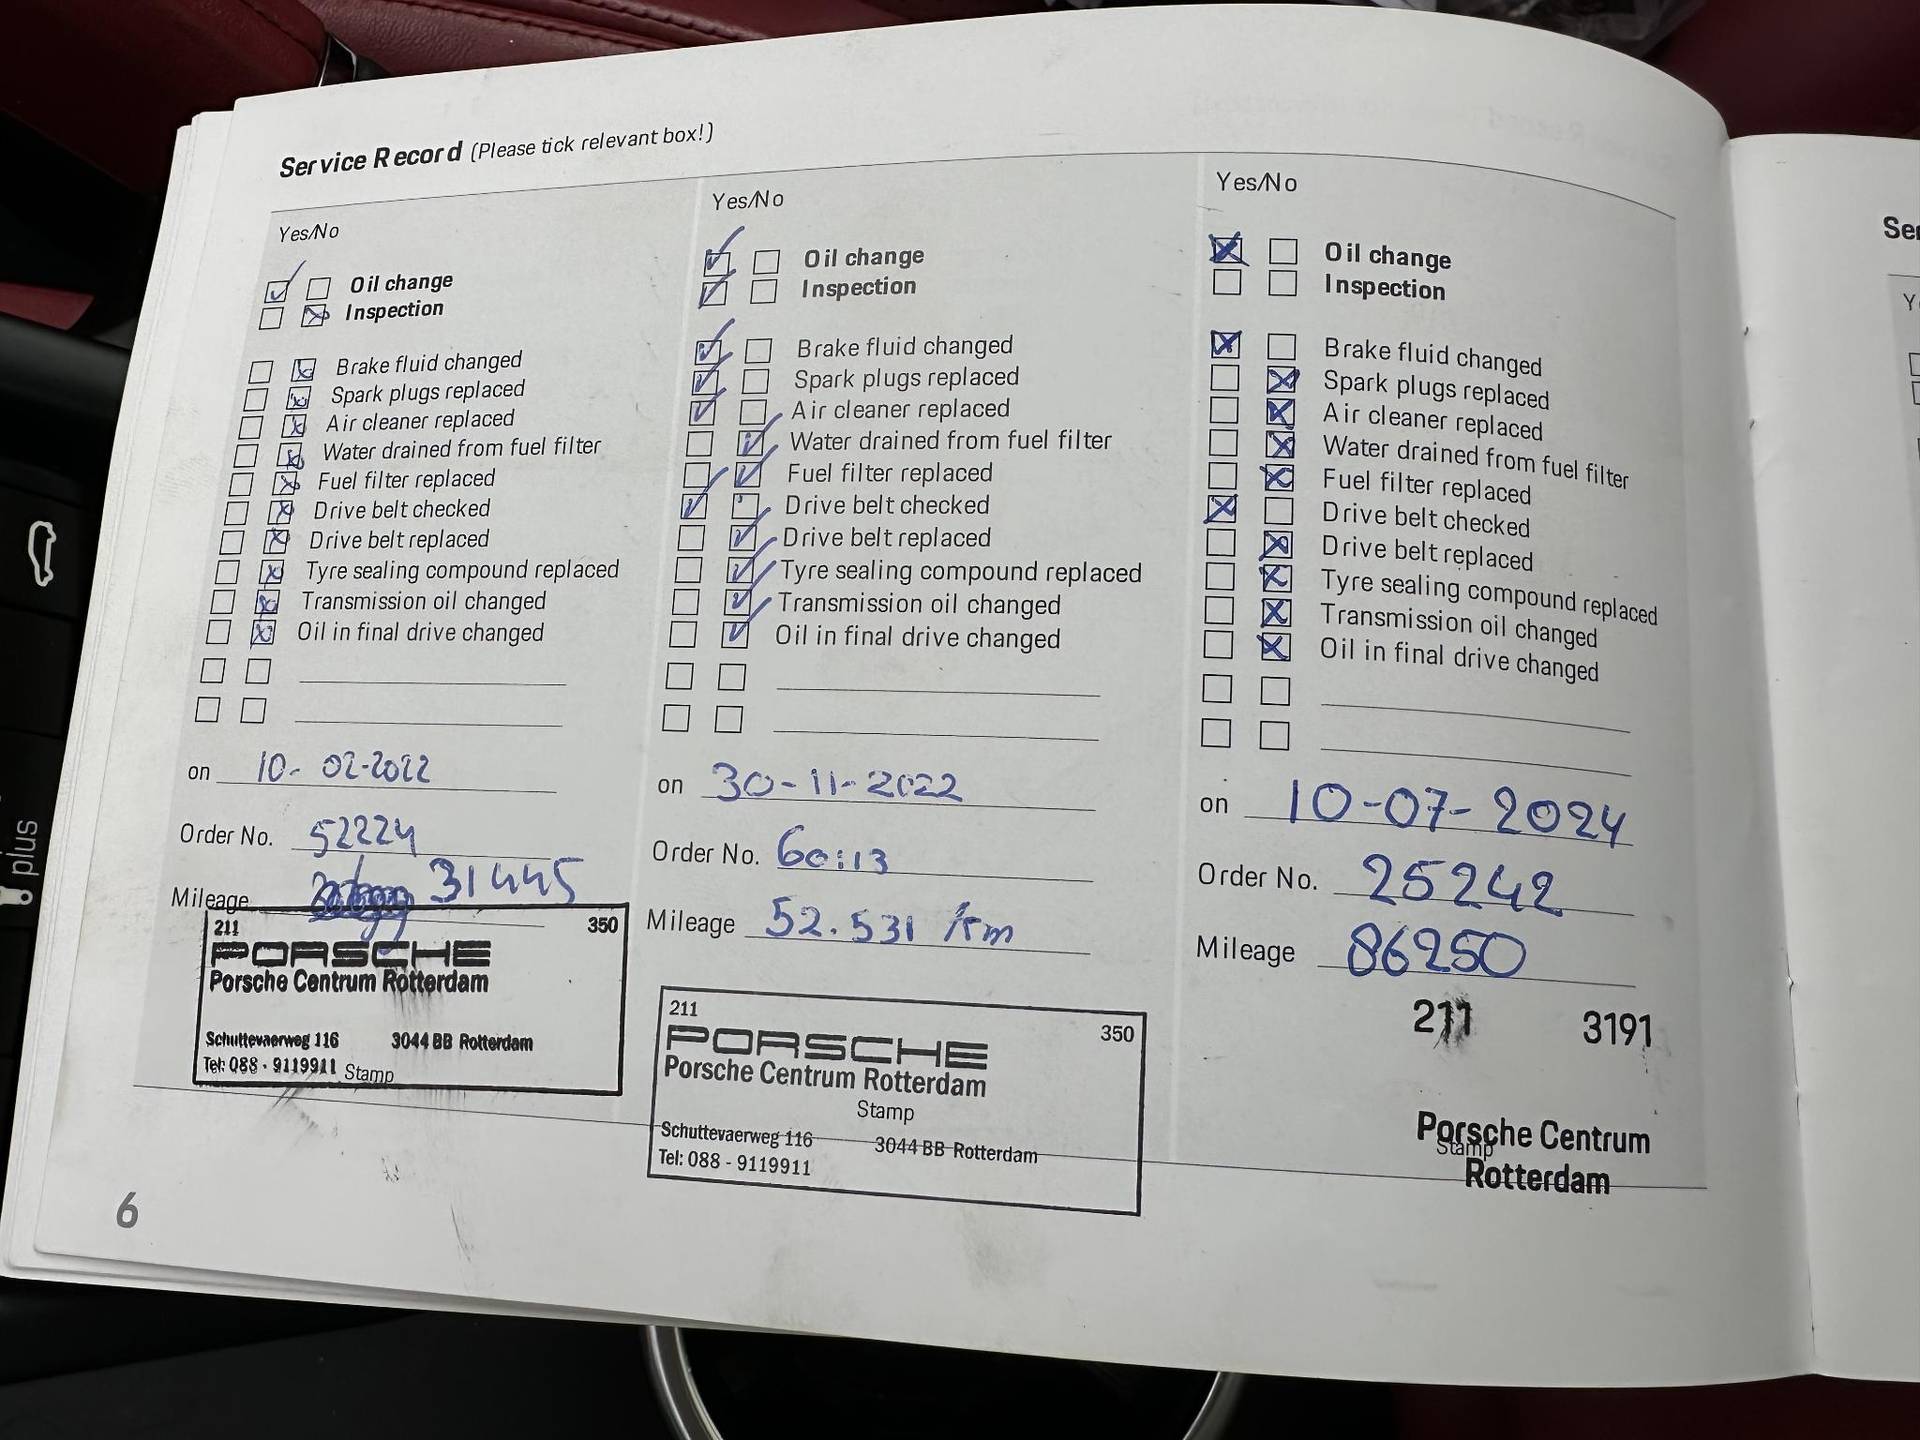 Service Record (Please tick relevant box!)
Yes/No
Oil change
Inspection
Brake fluid changed
Spark plugs replaced
Air cleaner replaced
Water drained from fuel filter
Fuel filter replaced
Drive belt checked
Drive belt replaced
Tyre sealing compound replaced
Transmission oil changed
Oil in final drive changed
on 10-02-2022
Order No. 52224
Mileage 31445
211 350
PORSCHE
Porsche Centrum Rotterdam
Schuttevaerweg 116 3044 BB Rotterdam
Tel: 088 - 9119911 Stamp
Yes/No
Oil change
Inspection
Brake fluid changed
Spark plugs replaced
Air cleaner replaced
Water drained from fuel filter
Fuel filter replaced
Drive belt checked
Drive belt replaced
Tyre sealing compound replaced
Transmission oil changed
Oil in final drive changed
on 30-11-2022
Order No. 
Mileage 52.531 km
211 350
PORSCHE
Porsche Centrum Rotterdam
Stamp
Schuttevaerweg 116 3044 BB Rotterdam
Tel: 088 - 9119911
Yes/No
Oil change
Inspection
Brake fluid changed
Spark plugs replaced
Air cleaner replaced
Water drained from fuel filter
Fuel filter replaced
Drive belt checked
Drive belt replaced
Tyre sealing compound replaced
Transmission oil changed
Oil in final drive changed
on 10-07-2024
Order No. 25242
Mileage 86250
211 3191
Porsche Centrum
Stamp
Rotterdam
6
plus